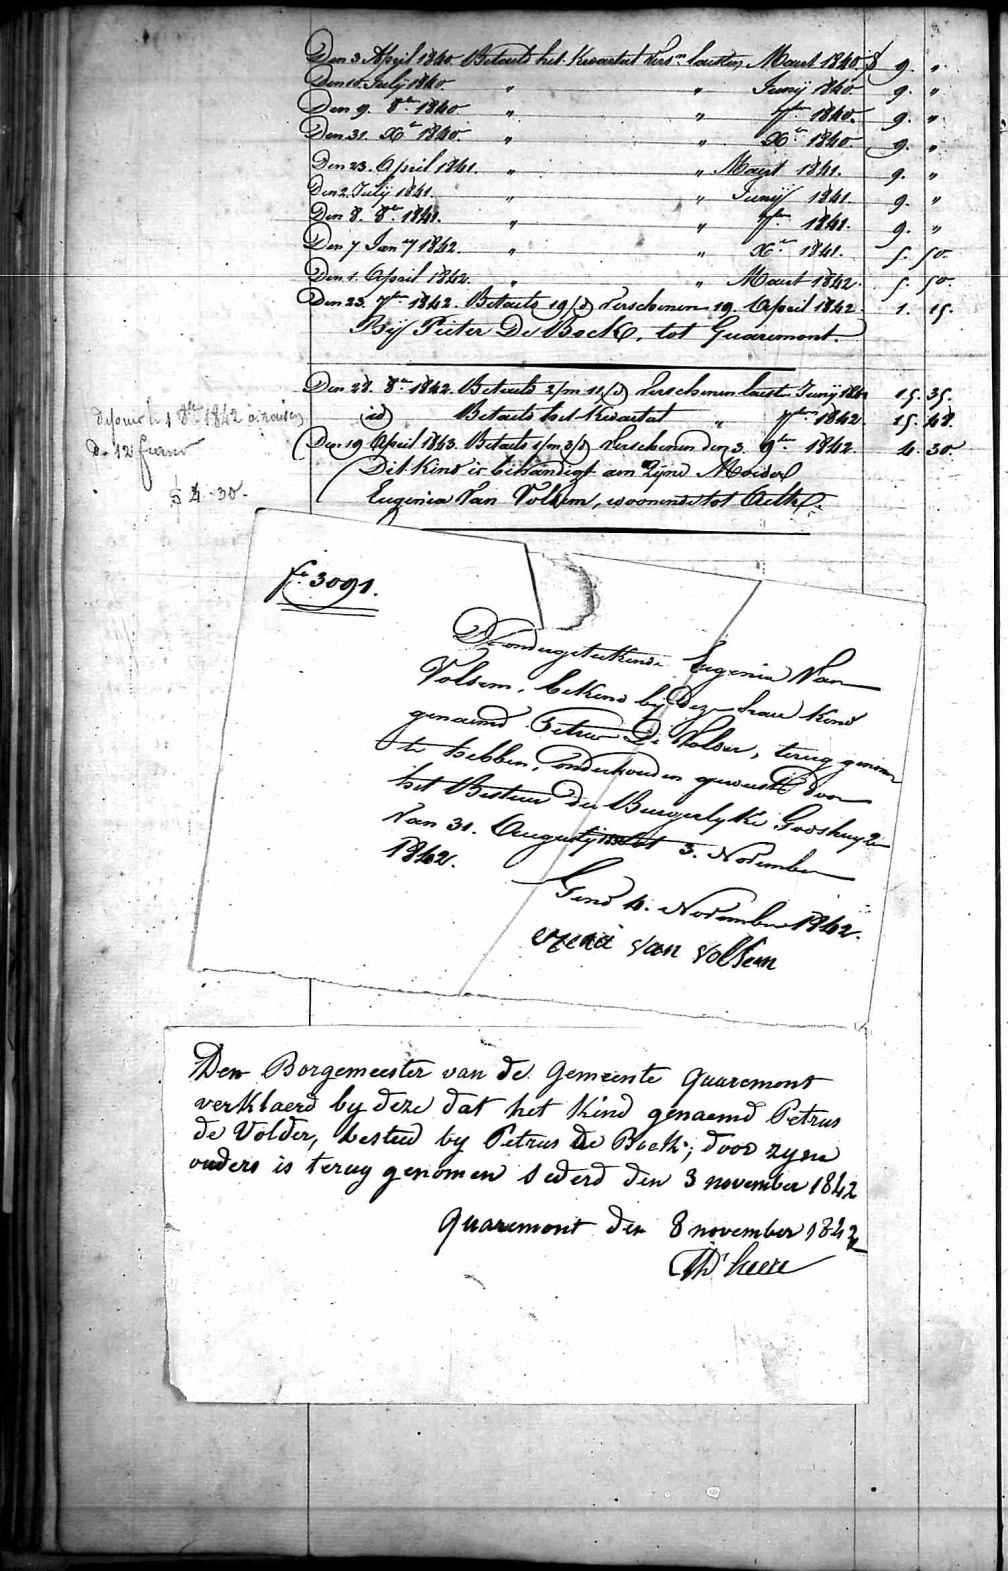 Den 3 April 1840. Betaelt het Kwartal Versn. laesten Maart 1840. f 9. "
Den 10 July 1840. " " Junij 1840 9. "
Den 9. 8er 1840. " " 7er 1840. 9. "
Den 31. Xer 1840. " " Xer 1840. 9. "
Den 23. April 1841. " " Maart 1841. 9. "
Den 2. July 1841. " " Junij 1841. 9. "
Den 8. 8er 1841. " " 7er 1841. 9. "
Den 7 Janry 1842. " " Xer 1841. 5. 50.
Den 1. April 1842. " " Maart 1842. 5. 50.
Den 23. 7er 1842. Betaelt 19/d Verschenen 19. April 1842. 1. 15.
Bij Pieter De Bock, tot Quaremont.
Den 28. 8er 1842. Betaelt 2/m 11/d Verschenen laest Junij 15. 35.
id Betaelt het Kwartal " 7er 1842 15. 48.
Den 19 April 1843. Betaelt 1/m 3/d Verschenen den 3. 9er 1842. 4. 30.
Dit Kind is behandigt aen Zijne Moeder
Eugenia Van Volsem, woonende tot Aelst.
le 1 8re 1842 a raison
De 12
à 4-30.
fo. 3091.
De ondergeteekende Eugenia Van
Volsem, bekend bij deze haer kind
genaemd Petrus De Volder, terug genomen
te hebben, onderhouden geweest door
het Bestuer der Burgerlyke Godshuyzen
Van 31. Augusty tot 3. November
1842.
Gend 4. November 1842.
van volsem
Den Borgemeester van de Gemeente Quaremont
verklaerd by deze dat het Kind genaemd Petrus
de Volder, besteed by Petrus de Bock, door zyne
ouders is terug genomen sederd den 3 november 1842
Quaremont den 8 november 1842